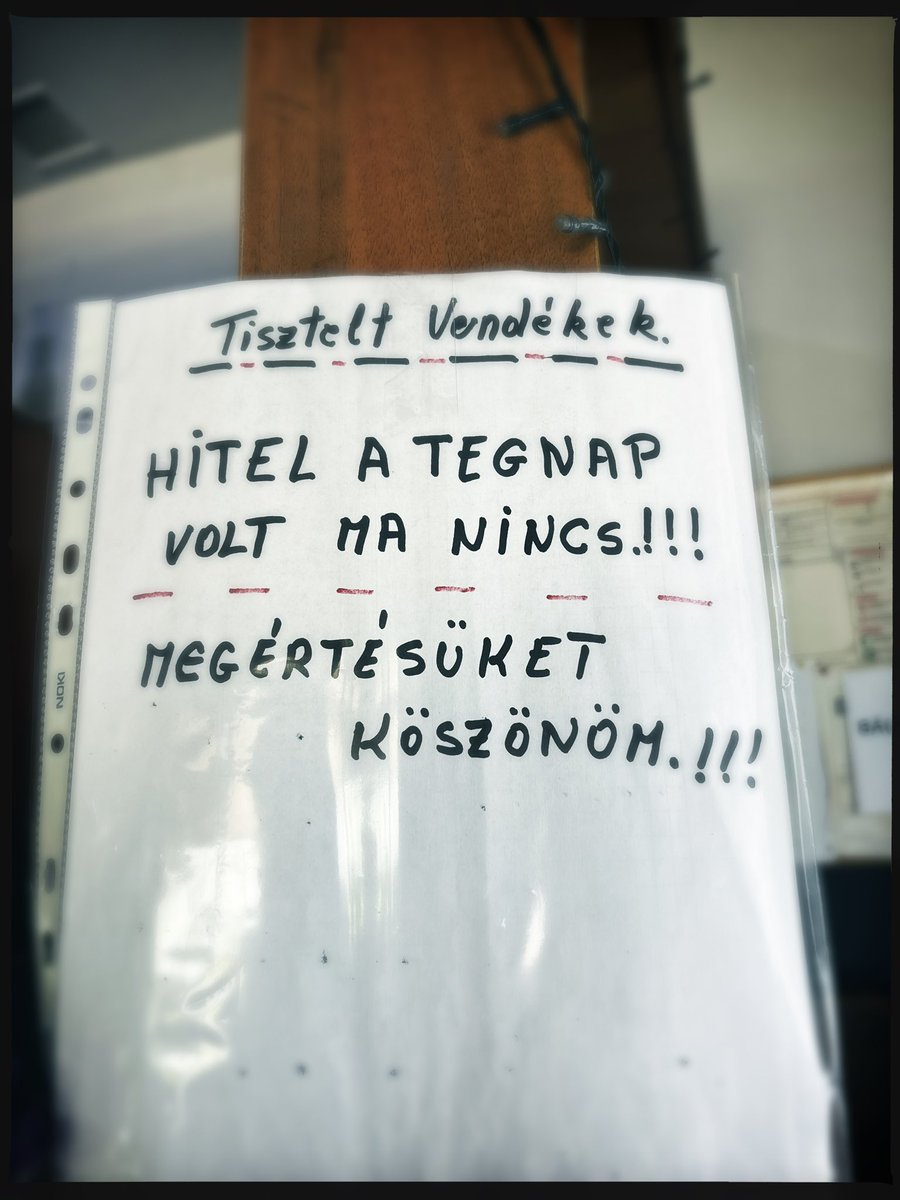 Tisztelt Vendékek.
HITEL A TEGNAP
VOLT MA NINCS.!!!
MEGÉRTÉSÜKET
KÖSZÖNÖM.!!!
NOKI